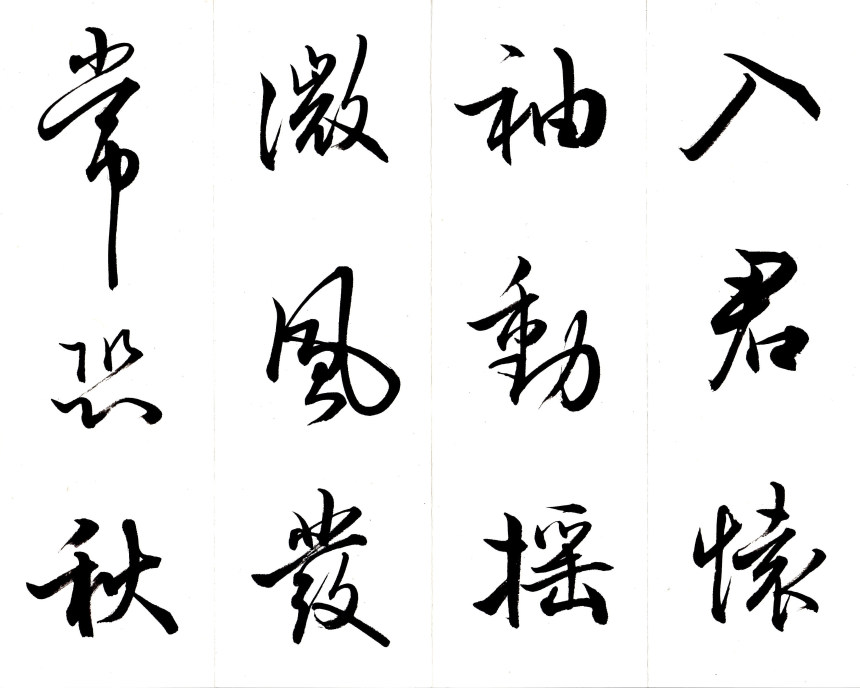 入君懐
袖動揺
微風發
常恐秋